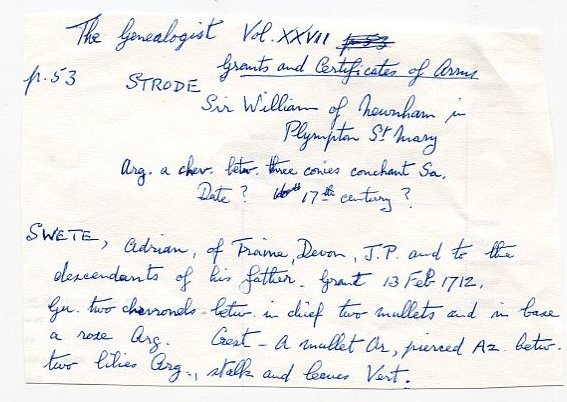 The Genealogist Vol. XXVII p. 53
Grants and Certificates of Arms
p. 53 STRODE
Sir William of Newnham in
Plympton St Mary
Arg. a chev. betw. three conies conchant Sa.
Date? 17th century?
SWETE, Adrian, of Traine, Devon, J.P. and to the
descendants of his father. Grant 13 Feb 1712.
Gu. two chevronels betw. in chief two mullets and in base
a rose Arg. Crest - A mullet Or, pierced Az. betw.
two lilies Arg., stalk and leaves Vert.